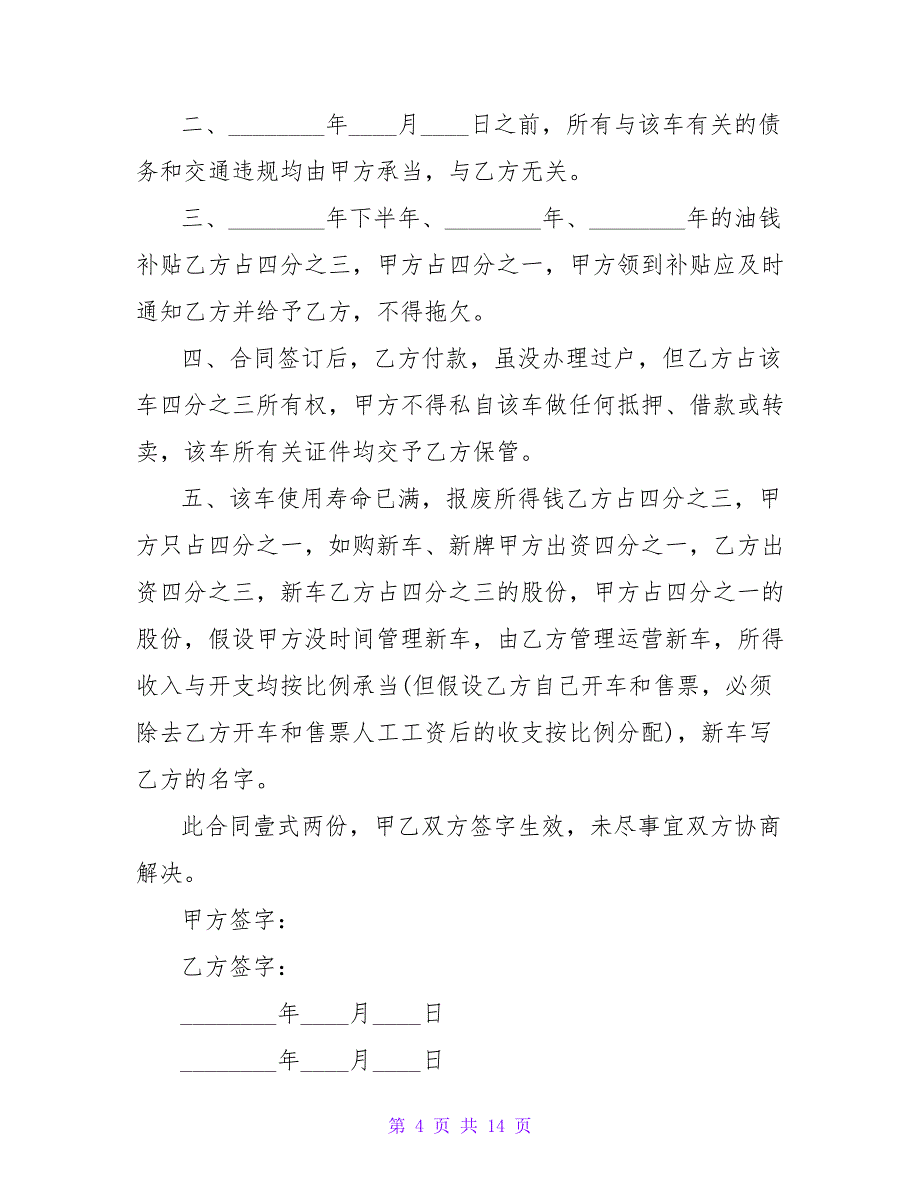 二、________年____月____日之前，所有与该车有关的债
务和交通违规均由甲方承当，与乙方无关。
三、________年下半年、________年、________年的油钱
补贴乙方占四分之三，甲方占四分之一，甲方领到补贴应及时
通知乙方并给予乙方，不得拖欠。
四、合同签订后，乙方付款，虽没办理过户，但乙方占该
车四分之三所有权，甲方不得私自该车做任何抵押、借款或转
卖，该车所有关证件均交予乙方保管。
五、该车使用寿命已满，报废所得钱乙方占四分之三，甲
方只占四分之一，如购新车、新牌甲方出资四分之一，乙方出
资四分之三，新车乙方占四分之三的股份，甲方占四分之一的
股份，假设甲方没时间管理新车，由乙方管理运营新车，所得
收入与开支均按比例承当(但假设乙方自己开车和售票，必须
除去乙方开车和售票人工工资后的收支按比例分配)，新车写
乙方的名字。
此合同壹式两份，甲乙双方签字生效，未尽事宜双方协商
解决。
甲方签字：
乙方签字：
________年____月____日
________年____月____日
第 4 页 共 14 页